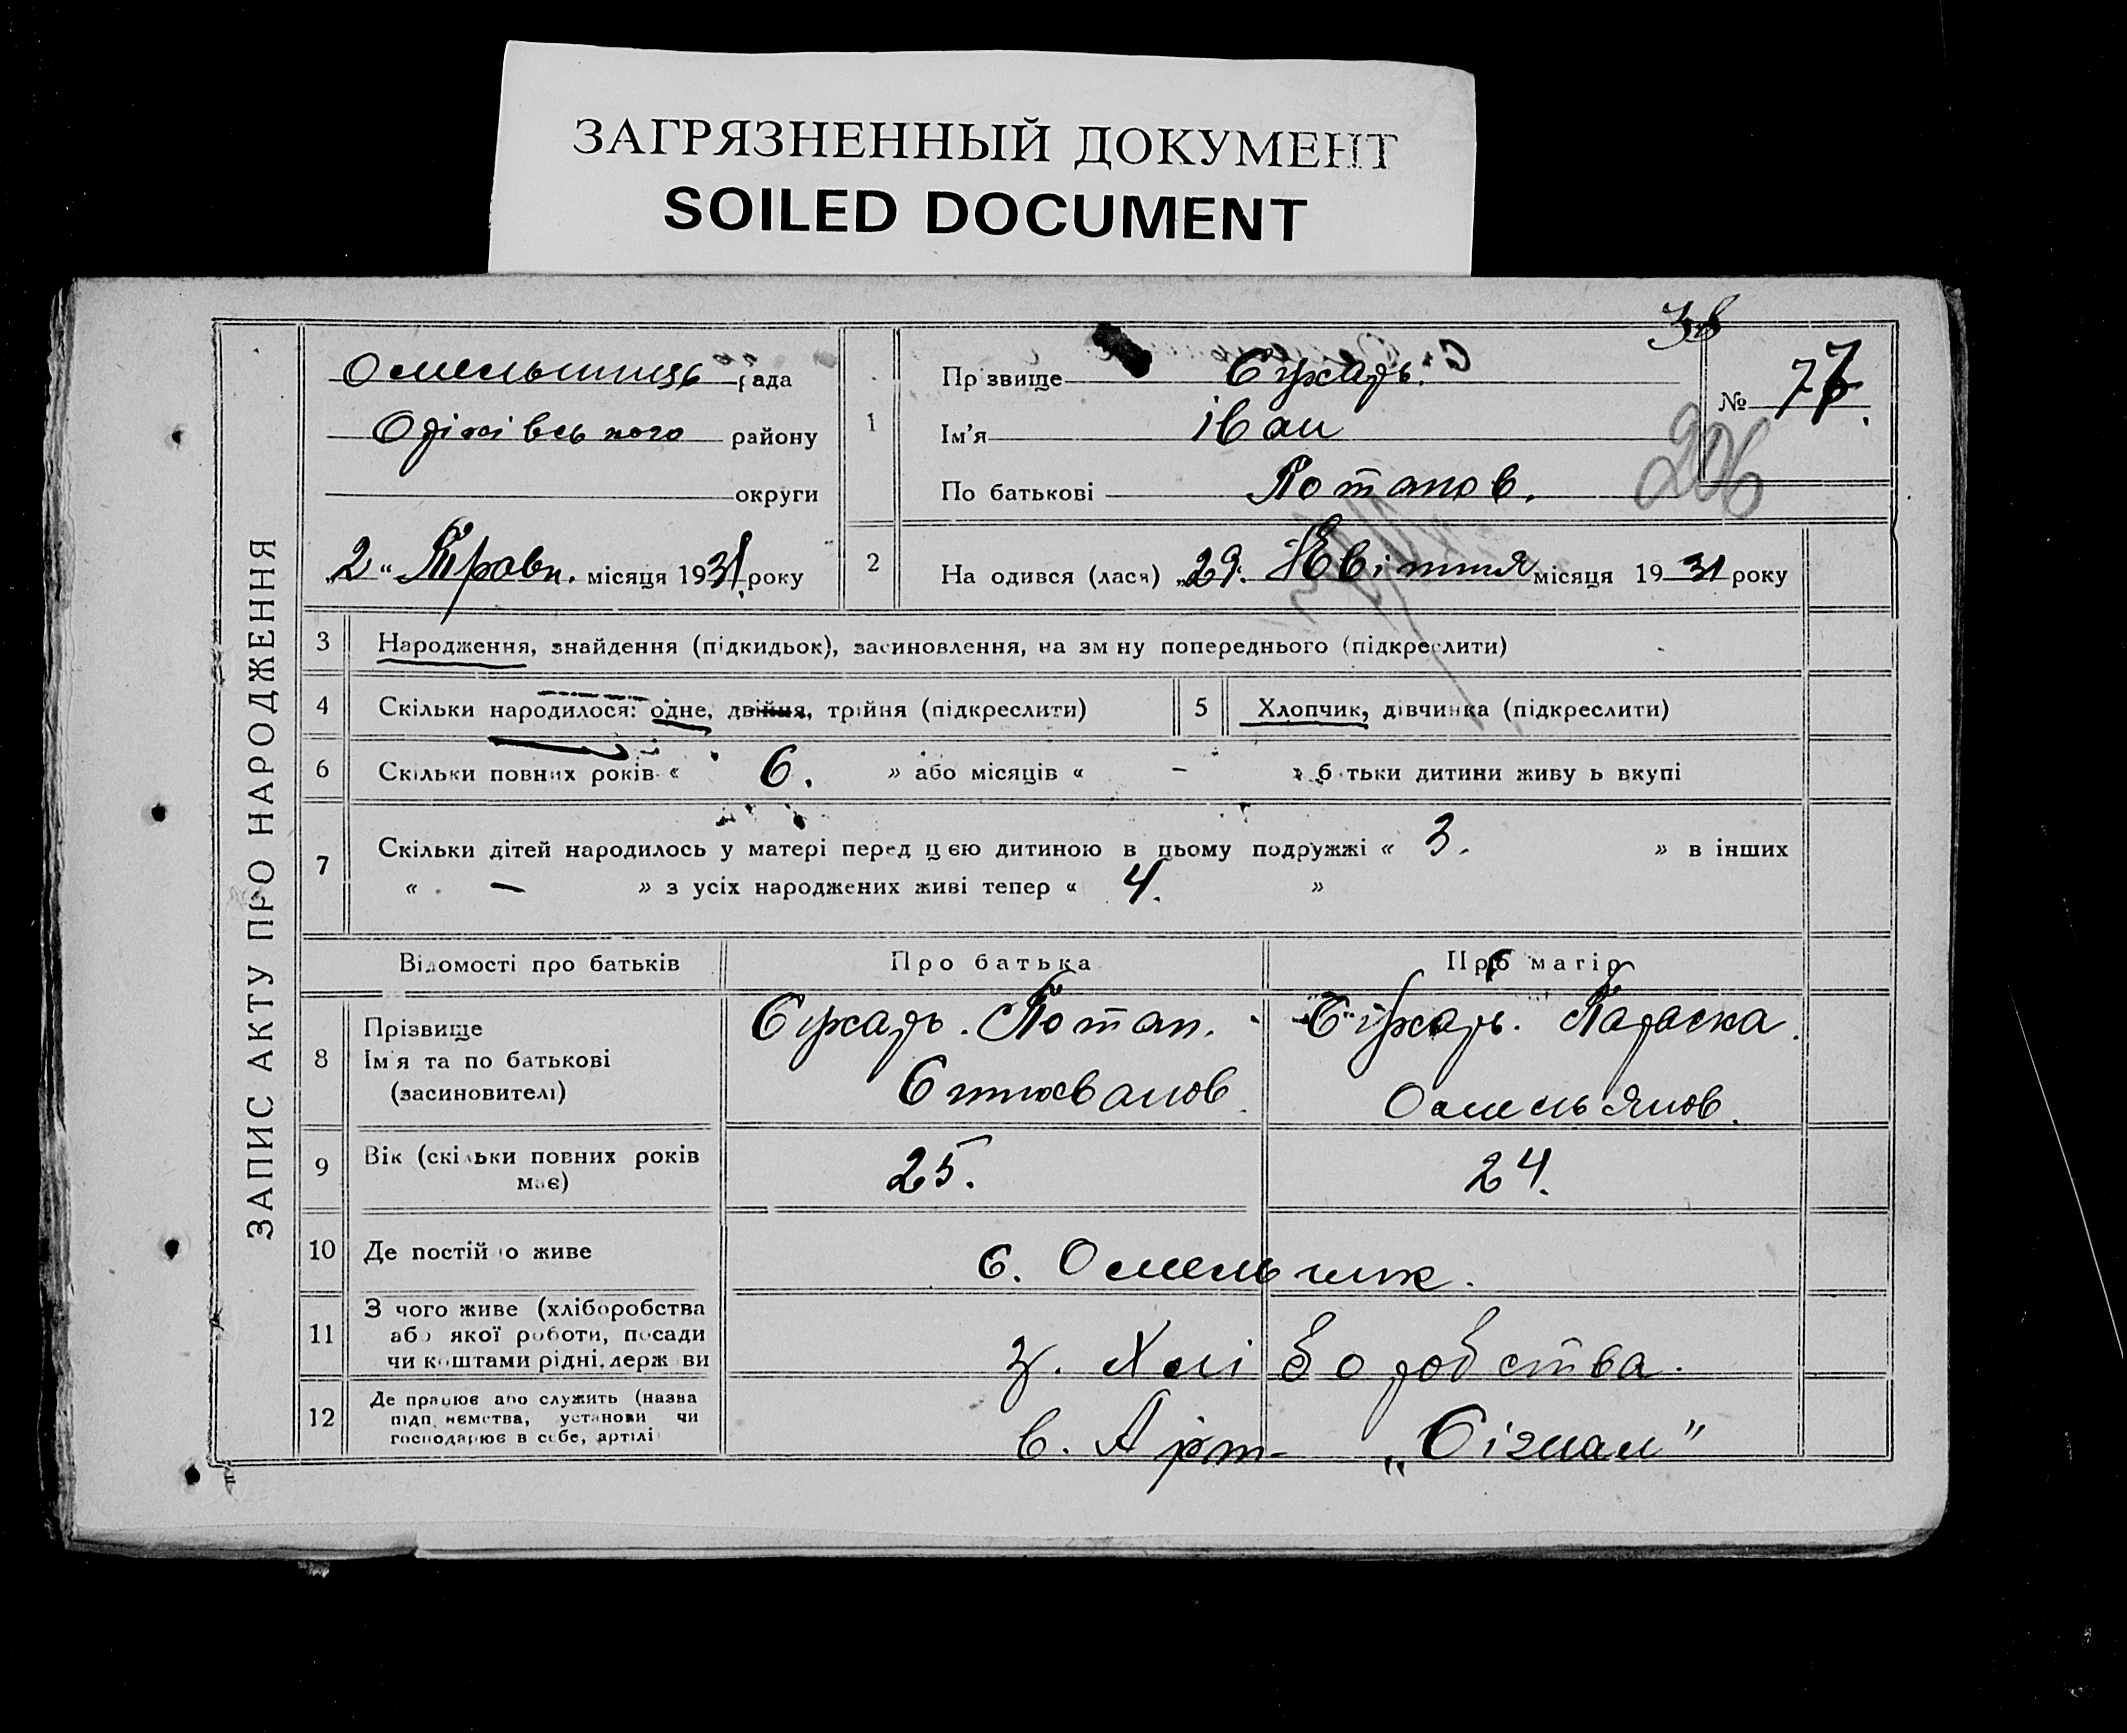 ЗАГРЯЗНЕННЫЙ ДОКУМЕНТ
SOILED DOCUMENT
ЗАПИС АКТУ ПРО НАРОДЖЕННЯ
рада
району
округи
2 " Травн. місяця 1931 року
1
Прізвище Сухарь.
Ім'я Іван
По батькові Потапов.
№ 77
206
2
Народився (лася) 29. Квітня місяця 1931 року
3 Народження, знайдення (підкидьок), засиновлення, на зміну попереднього (підкреслити)
4 Скільки народилося: одне, двійня, трійня (підкреслити)
5 Хлопчик, дівчинка (підкреслити)
6 Скільки повних років « 6. » або місяців « – » батьки дитини живуть вкупі
7 Скільки дітей народилось у матері перед цєю дитиною в цьому подружжі « 3. » в інших
« – » з усіх народжених живі тепер « 4. »
Відомості про батьків Про батька Про матір
8 Прізвище
Ім'я та по батькові
(засиновителі)
Сухарь. Потап.
Сухарь. Параска.
Омельянов.
9 Вік (скільки повних років має)
25. 24.
10 Де постійно живе
с. Омельник.
11 З чого живе (хліборобства
або якої роботи, посади
чи коштами рідні, держави
з. Хліборобства.
12 Де працює або служить (назва
підприємства, установи чи
господарює в себе, артілі
в. Арт- „Сігнал"